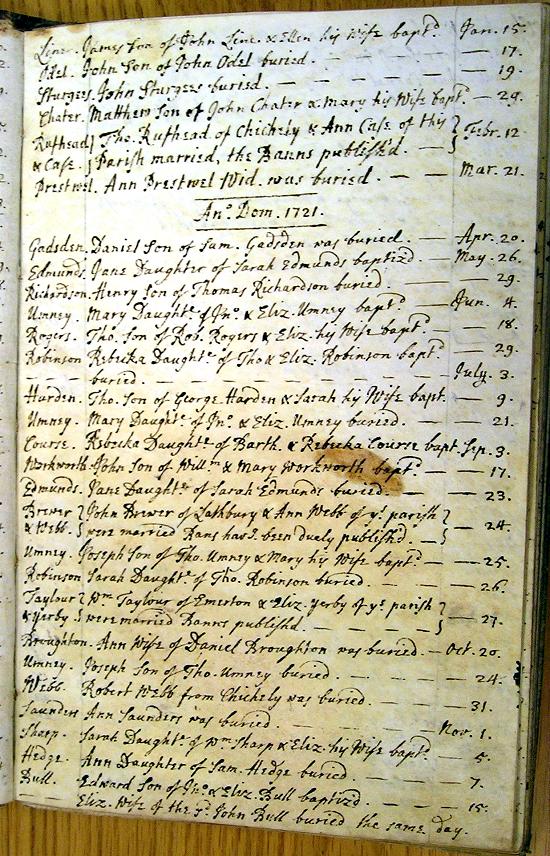 Line. James Son of John Line & Ellen his Wife bapt.d Jan. 15.
Odel. John Son of John Odel buried. — — — 17.
Sturges. John Sturges buried. — — — 19.
Chater. Matthew Son of John Chater & Mary his Wife bapt. — 29.
Rufhead } Tho. Rufhead of Chichely & Ann Case of this } Febr. 12
& Case. } Parish married, the Banns publish'd. — }
Prestwel. Ann Prestwel Wid. was buried. — — Mar. 21.
An.o Dom. 1721.
Gadsden. Daniel Son of Sam. Gadsden was buried. — Apr. 20.
Edmunds. Jane Daughter of Sarah Edmunds baptiz'd. — May. 26.
Richardson. Henry Son of Thomas Richardson buried. — 29.
Umney. Mary Daught.r of Jn.o & Eliz. Umney bapt.d — Jun. 4.
Rogers. Tho. Son of Rob. Rogers & Eliz. his Wife bapt.d — 18.
Robinson Rebecka Daught.r of Tho & Eliz. Robinson bapt.d 29.
— — buried. — — — — — July. 3.
Harden. Tho. Son of George Harden & Sarah his Wife bapt. — 9.
Umney. Mary Daught.r of Jn.o & Eliz. Umney buried. — 21.
Course. Rebecka Daught.r of Barth. & Rebecka Course bapt. Sep. 3.
Workworth. John Son of Will.m & Mary Workworth bapt.d — 17.
Edmunds. Jane Daught.r of Sarah Edmunds buried. — — 23.
Brewer } John Brewer of Lathbury & Ann Webb of y.s parish } 24.
& Webb. } were married Bans hav.g been duely publish'd. — }
Umney. Joseph Son of Tho. Umney & Mary his Wife bapt.d — 25.
Robinson Sarah Daught.r of Tho. Robinson buried. — — 26.
Taylour } W.m Taylour of Emerton & Eliz. Yerby of y.s parish } 27.
& Yerby } were married Banns publish'd. — — — }
Broughton. Ann Wife of Daniel Broughton was buried. — Oct. 20.
Umney. Joseph Son of Tho. Umney buried. — — 24.
Webb. Robert Webb from Chichely was buried. — — 31.
Saunders Ann Saunders was buried. — — — Nov. 1.
Sharp. Sarah Daught.r of W.m Sharp & Eliz. his Wife bapt.d 5.
Hedge. Ann Daughter of Sam. Hedge buried. — — 7.
Bull. Edward Son of Jn.o & Eliz. Bull baptiz'd. — — 15.
Eliz. Wife of the s.d John Bull buried the same day.